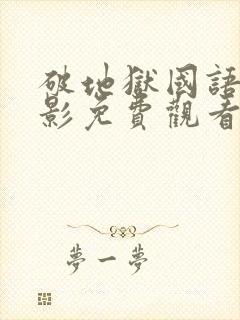 破地獄國語
影免費觀看
夢一夢